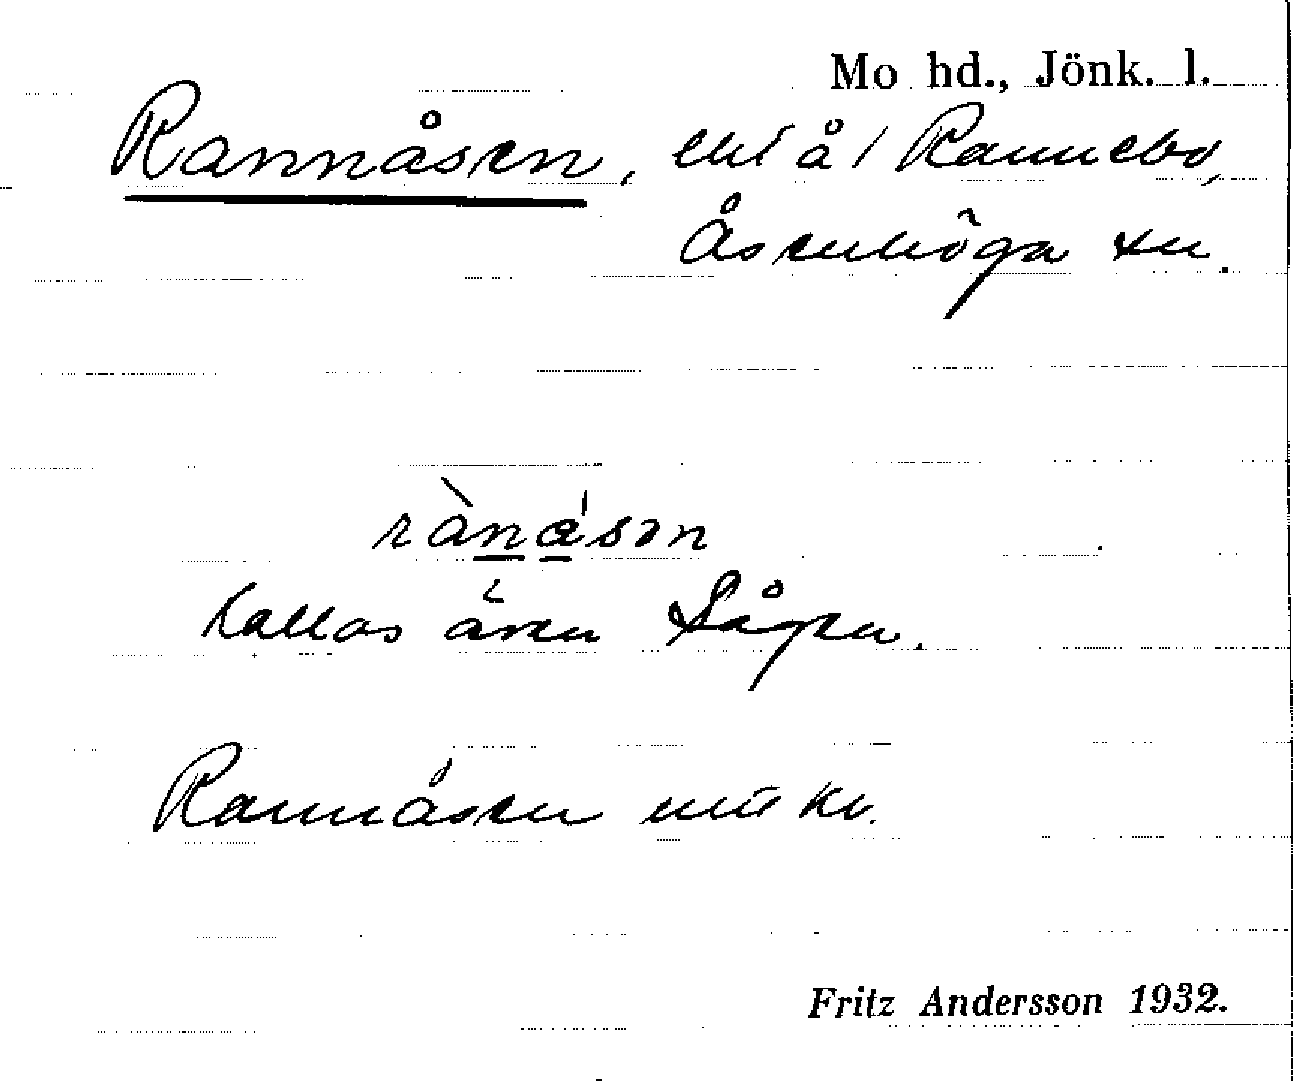 Mo hd., Jönk. l.
Rannåsen, ext å / Rannebo,
Åsenhöga sn.
rànåsən
kallas även Sågen.
Rannåsen mtkv.
Fritz Andersson 1932.